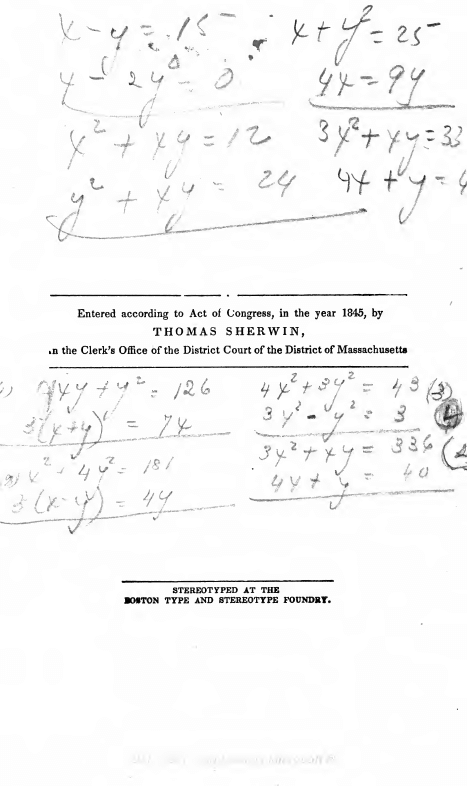 x - y = 15
y - 2y = 0
x² + xy = 12
y² + xy = 24
x + y² = 25
4x = 9y
3x² + xy = 33
4x + y = 4
Entered according to Act of Congress, in the year 1845, by
THOMAS SHERWIN,
in the Clerk's Office of the District Court of the District of Massachusetts
xy + y² = 126
3(x+y) = 7x
x² - 4y² = 181
3(x-y) = 4y
4x² + 3y² = 43 (3)
3y² - y² = 3 (4)
3x² + xy = 336
4x + y = 40
STEREOTYPED AT THE
BOSTON TYPE AND STEREOTYPE FOUNDRY.